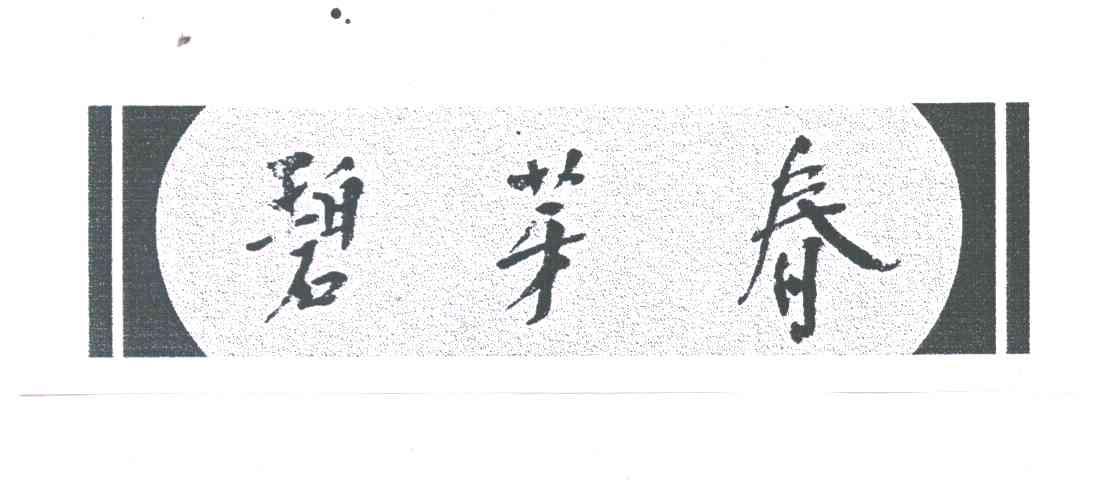 碧芽春